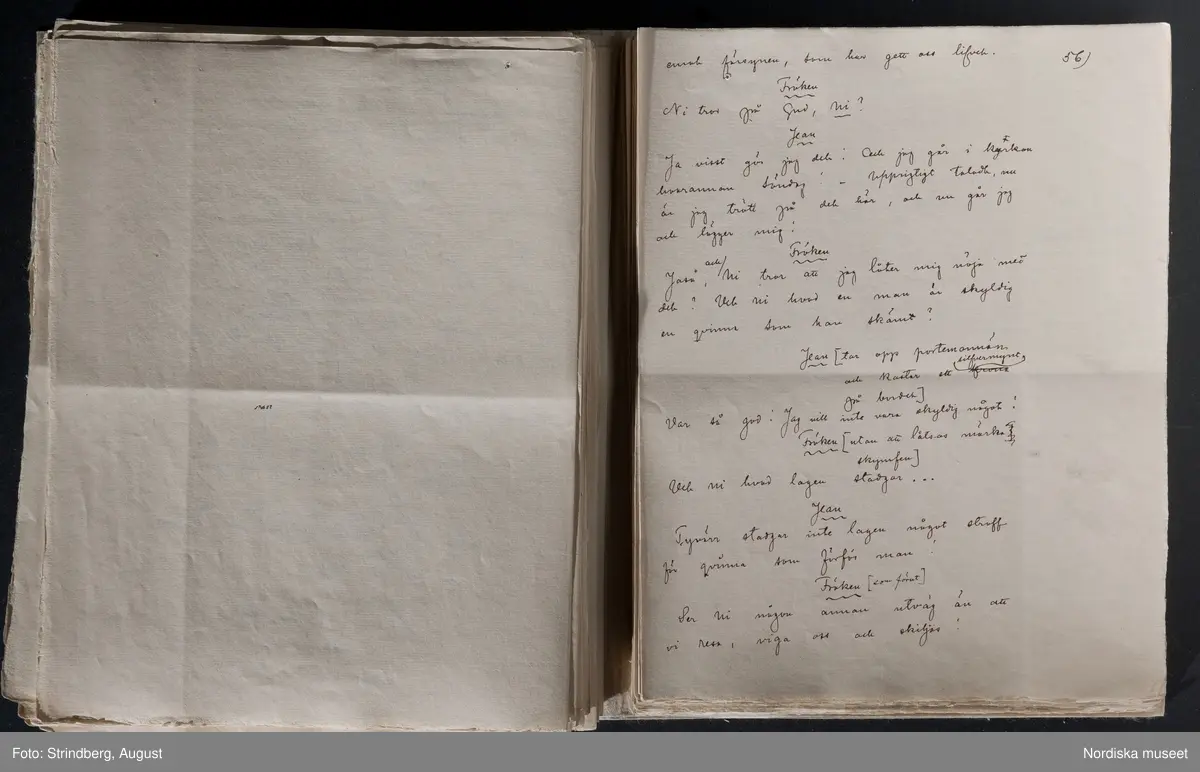 emot försynen, som har gett oss lifvet.
56)
Fröken
Ni tror på Gud, Ni?
Jean
Ja visst gör jag det! Och jag går i kyrkan
hvarannan söndag! – Uppriktigt taladt, nu
är jag trött på det här, och nu går jag
och lägger mig!
Fröken
Jaså, och Ni tror att jag låter mig nöja med
det? Vet Ni hvad en man är skyldig
en qvinna som han skämt?
Jean [tar opp portemonnän
och kastar ett silfvermynt
på bordet]
Var så god! Jag vill inte vara skyldig något!
Fröken [utan att låtsas märka
skymfen]
Vet Ni hvad lagen stadgar ...
Jean
Tyvärr stadgar inte lagen något straff
för qvinna som förför man!
Fröken [som förut]
Ser Ni någon annan utväg än att
vi resa, viga oss och skiljas!
Foto: Strindberg, August
Nordiska museet